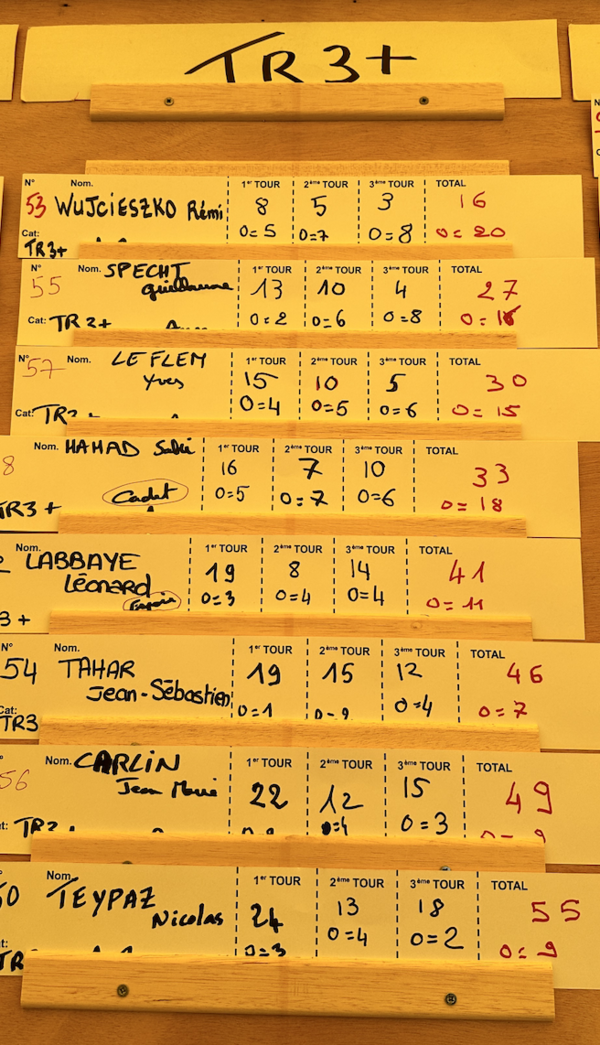 TR3+
N° Nom. 1er TOUR 2ème TOUR 3ème TOUR TOTAL
53 WUJCIESZKO Rémi 8 5 3 16
Cat: 0=5 0=7 0=8 0=20
TR3+
N° Nom. SPECHT 1er TOUR 2ème TOUR 3ème TOUR TOTAL
55 Guillaume 13 10 4 27
Cat: TR3+ 0=2 0=6 0=8 0=16
N° Nom. LE FLEM 1er TOUR 2ème TOUR 3ème TOUR TOTAL
57 Yves 15 10 5 30
Cat: 0=4 0=5 0=6 0=15
Nom. HAMAD 1er TOUR 2ème TOUR 3ème TOUR TOTAL
8 16 7 10 33
TR3+ Cadet 0=5 0=7 0=6 0=18
Nom. LABBAYE 1er TOUR 2ème TOUR 3ème TOUR TOTAL
Léonard 19 8 14 41
3+ Espoir 0=3 0=4 0=4 0=11
N° Nom. 1er TOUR 2ème TOUR 3ème TOUR TOTAL
54 TAHAR 19 15 12 46
Jean-Sébastien
Cat: 0=1 0=4 0=7
TR3
Nom. CARLIN 1er TOUR 2ème TOUR 3ème TOUR TOTAL
56 Jean Marie 22 12 15 49
0=4 0=3
Nom. 1er TOUR 2ème TOUR 3ème TOUR TOTAL
TEYPAZ 24 13 18 55
Nicolas
0=3 0=4 0=2 0=9
TR